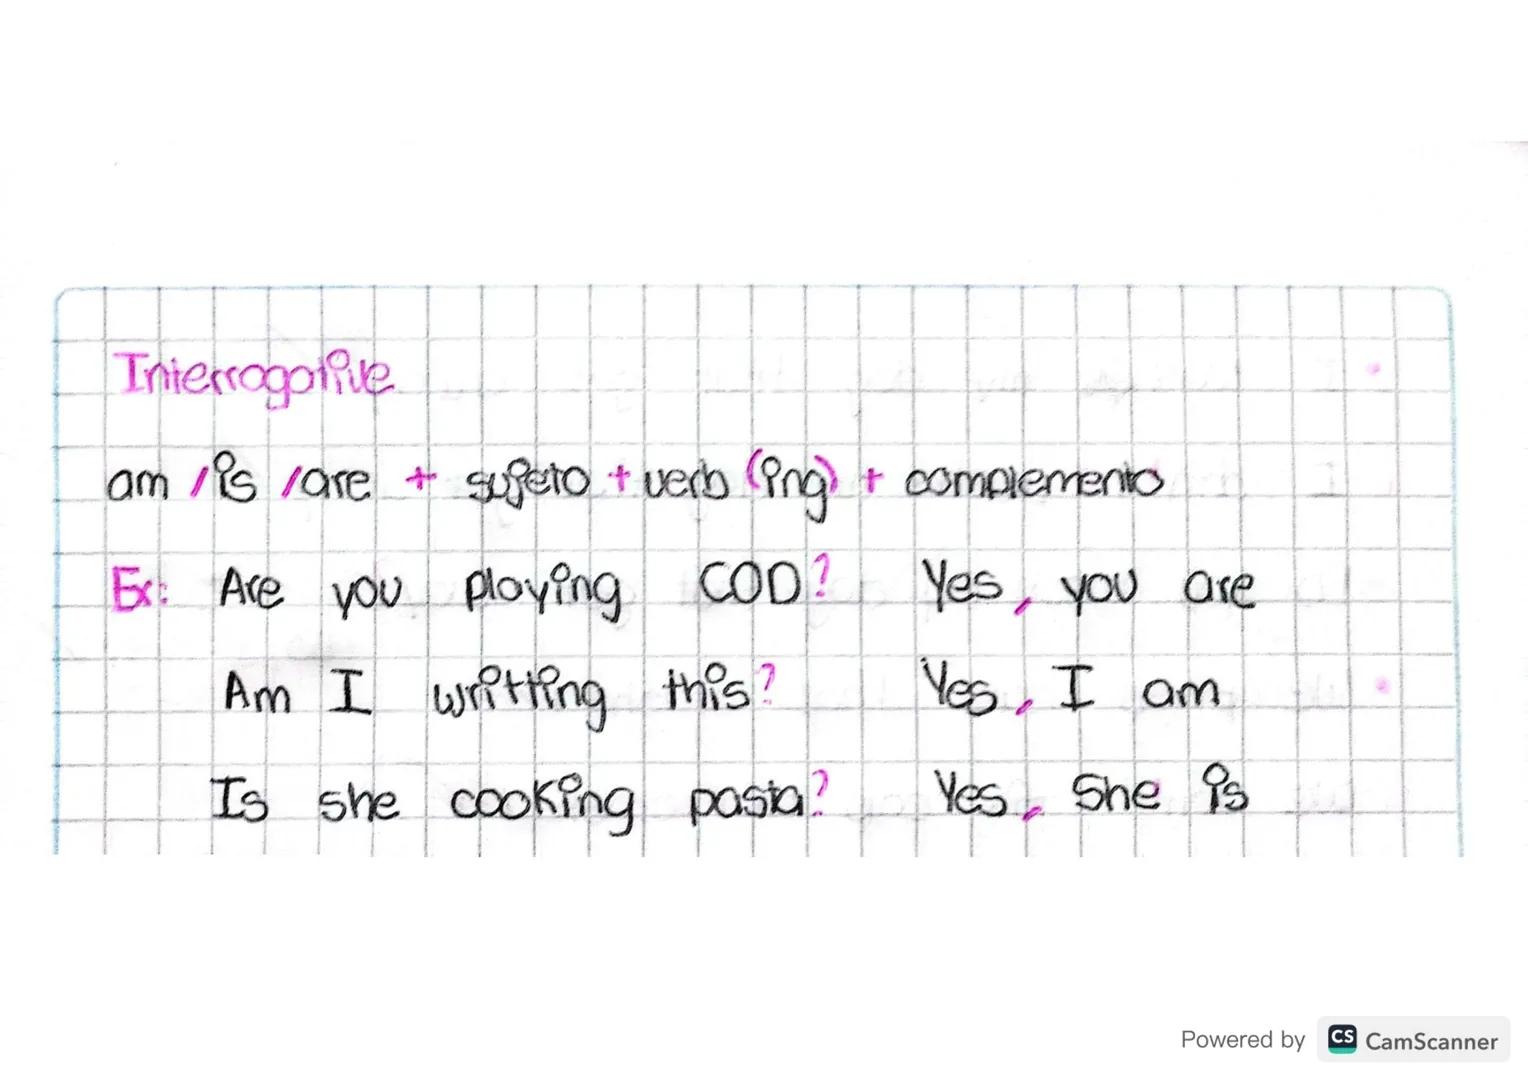 Interrogative
am / is / are + sujeto + verb (ing) + complemento
Ex: Are you playing COD? Yes, you are
Am I writting this? Yes, I am
Is she cooking pasta? Yes, She is
Powered by CS CamScanner